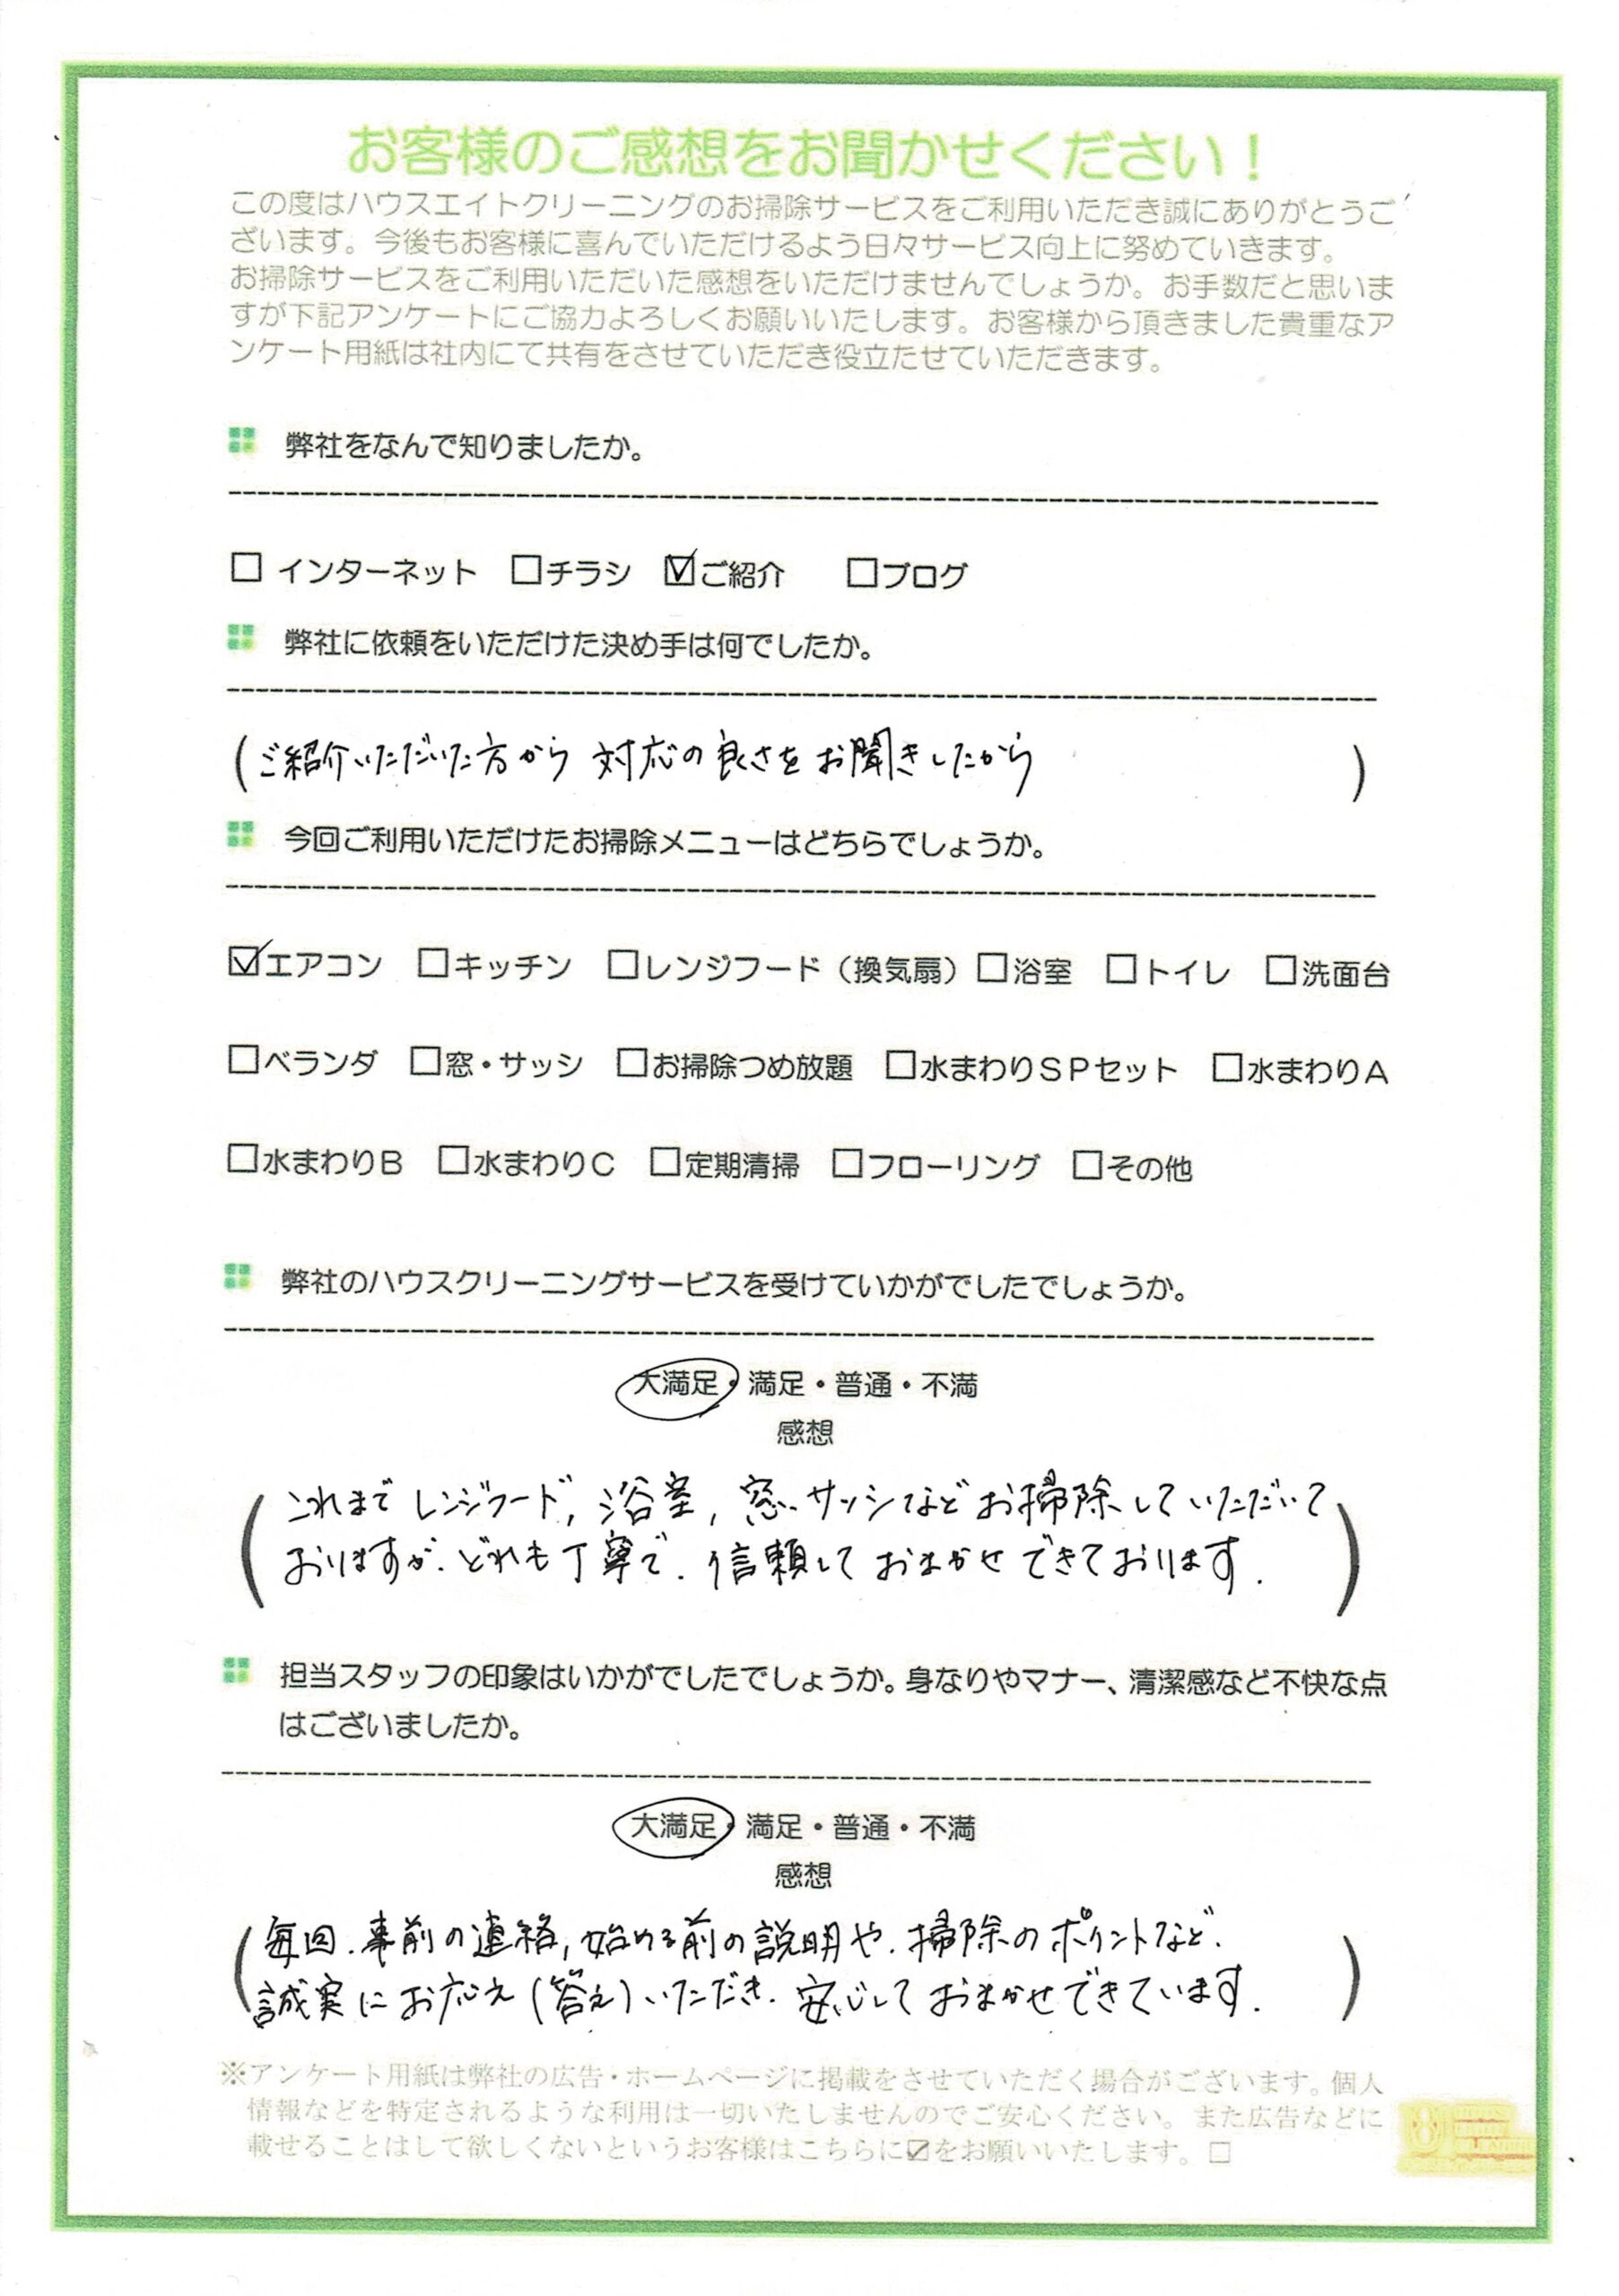 お客様のご感想をお聞かせください！
この度はハウスエイトクリーニングのお掃除サービスをご利用いただき誠にありがとうご
ざいます。今後もお客様に喜んでいただけるよう日々サービス向上に努めていきます。
お掃除サービスをご利用いただいた感想をいただけませんでしょうか。お手数だと思いま
すが下記アンケートにご協力よろしくお願いいたします。お客様から頂きました貴重なア
ンケート用紙は社内にて共有をさせていただき役立たせていただきます。
弊社をなんで知りましたか。
□ インターネット □チラシ ☑ご紹介 □ブログ
弊社に依頼をいただけた決め手は何でしたか。
(ご紹介いただいた方から 対応の良さを お聞きしたから)
今回ご利用いただけたお掃除メニューはどちらでしょうか。
☑エアコン □キッチン □レンジフード（換気扇）□浴室 □トイレ □洗面台
□ベランダ □窓・サッシ □お掃除つめ放題 □水まわりＳＰセット □水まわりＡ
□水まわりＢ □水まわりＣ □定期清掃 □フローリング □その他
弊社のハウスクリーニングサービスを受けていかがでしたでしょうか。
大満足・満足・普通・不満
感想
(これまで レンジフード, 浴室, 窓・サッシなど お掃除していただいて
おりますが、どれも丁寧で、信頼して おまかせできております.)
担当スタッフの印象はいかがでしたでしょうか。身なりやマナー、清潔感など不快な点
はございましたか。
大満足・満足・普通・不満
感想
(毎回、事前の連絡, 始める前の説明や、掃除のポイントなど、
誠実に お応え(答え)いただき、安心して おまかせできています.)
※アンケート用紙は弊社の広告・ホームページに掲載をさせていただく場合がございます。個人
情報などを特定されるような利用は一切いたしませんのでご安心ください。また広告などに
載せることはして欲しくないというお客様はこちらに☑をお願いいたします。□